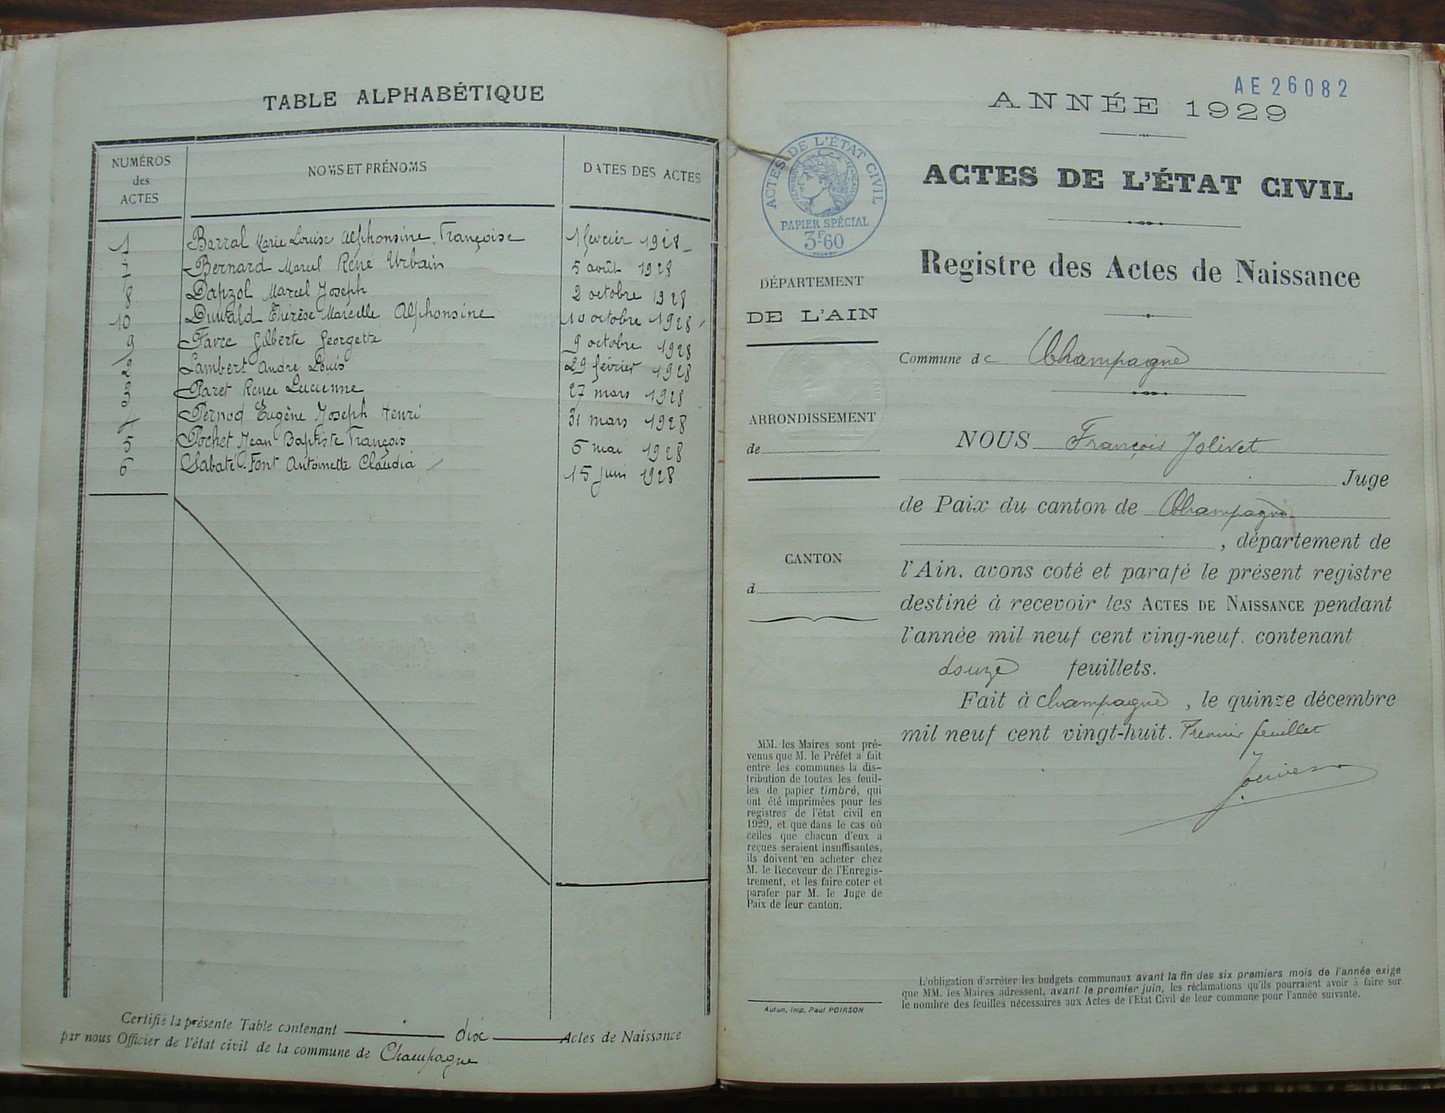 TABLE ALPHABÉTIQUE
NUMÉROS des ACTES
NOMS ET PRÉNOMS
DATES DES ACTES
1 Barral Marie Louise Alphonsine Françoise 1 février 1928
7 Bernard Marcel René Urbain 5 août 1928
8 Dapzol Marcel Joseph 2 octobre 1928
10 Duwald Thérèse Marcelle Alphonsine 10 octobre 1928
9 Favre Gilberte Georgette 9 octobre 1928
2 Lambert André Louis 29 février 1928
3 Paret Renée Lucienne 27 mars 1928
4 Pernod Eugène Joseph Henri 31 mars 1928
5 Pochet Jean Baptiste François 5 mai 1928
6 Sabaté-Font Antoinette Claudia 15 juin 1928
Certifié la présente Table contenant dix Actes de Naissance
par nous Officier de l'état civil de la commune de Champagne
AE 26082
ANNÉE 1929
ACTES DE L'ÉTAT CIVIL
PAPIER SPÉCIAL
3F60
ACTES DE L'ÉTAT CIVIL
Registre des Actes de Naissance
DÉPARTEMENT
DE L'AIN
ARRONDISSEMENT
de
CANTON
d
Commune de Champagne
NOUS François Jolivet
Juge
de Paix du canton de Champagne
, département de
l'Ain, avons coté et parafé le présent registre
destiné à recevoir les ACTES DE NAISSANCE pendant
l'année mil neuf cent ving-neuf. contenant
douze feuillets.
Fait à Champagne, le quinze décembre
mil neuf cent vingt-huit. Premier feuillet
MM. les Maires sont pré-
venus que M. le Préfet a fait
entre les communes la dis-
tribution de toutes les feuil-
les de papier timbré, qui
ont été imprimées pour les
registres de l'état civil en
1929, et que dans le cas où
celles que chacun d'eux a
reçues seraient insuffisantes,
ils doivent en acheter chez
M. le Receveur de l'Enregis-
trement, et les faire coter et
parafer par M. le Juge de
Paix de leur canton.
Autun, Imp. Paul POIRSON
L'obligation d'arrêter les budgets communaux avant la fin des six premiers mois de l'année exige
que MM. les Maires adressent, avant le premier juin, les réclamations qu'ils pourraient avoir à faire sur
le nombre des feuilles nécessaires aux Actes de l'Etat Civil de leur commune pour l'année suivante.